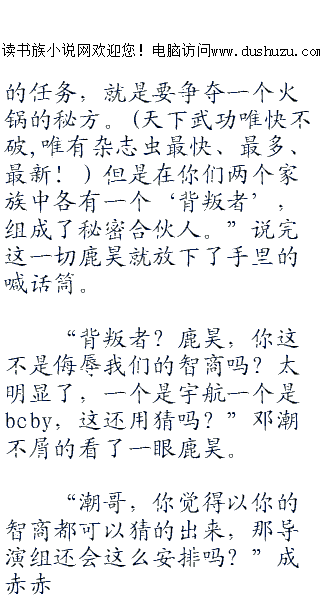 读书族小说网欢迎您！电脑访问www.dushuzu.com
的任务，就是要争夺一个火
锅的秘方。(天下武功唯快不
破,唯有杂志虫最快、最多、
最新！）但是在你们两个家
族中各有一个‘背叛者’，
组成了秘密合伙人。”说完
这一切鹿昊就放下了手里的
喊话筒。
“背叛者？鹿昊，你这
不是侮辱我们的智商吗？太
明显了，一个是宇航一个是
bcby，这还用猜吗？”邓潮
不屑的看了一眼鹿昊。
“潮哥，你觉得以你的
智商都可以猜的出来，那导
演组还会这么安排吗？”成
赤赤